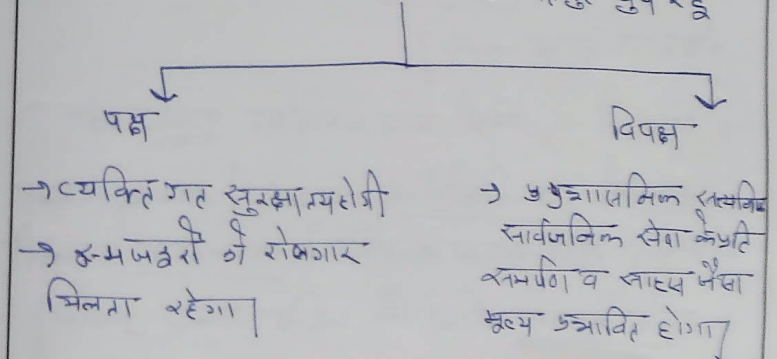 पक्ष
विपक्ष
→ व्यक्तिगत सुरक्षा तय होगी
→ मजदूरों को रोजगार
मिलता रहेगा।
→ प्रशासनिक सत्यनिष्ठ
सार्वजनिक सेवा के प्रति
समर्पण व साहस जैसा
मूल्य प्रभावित होगा।